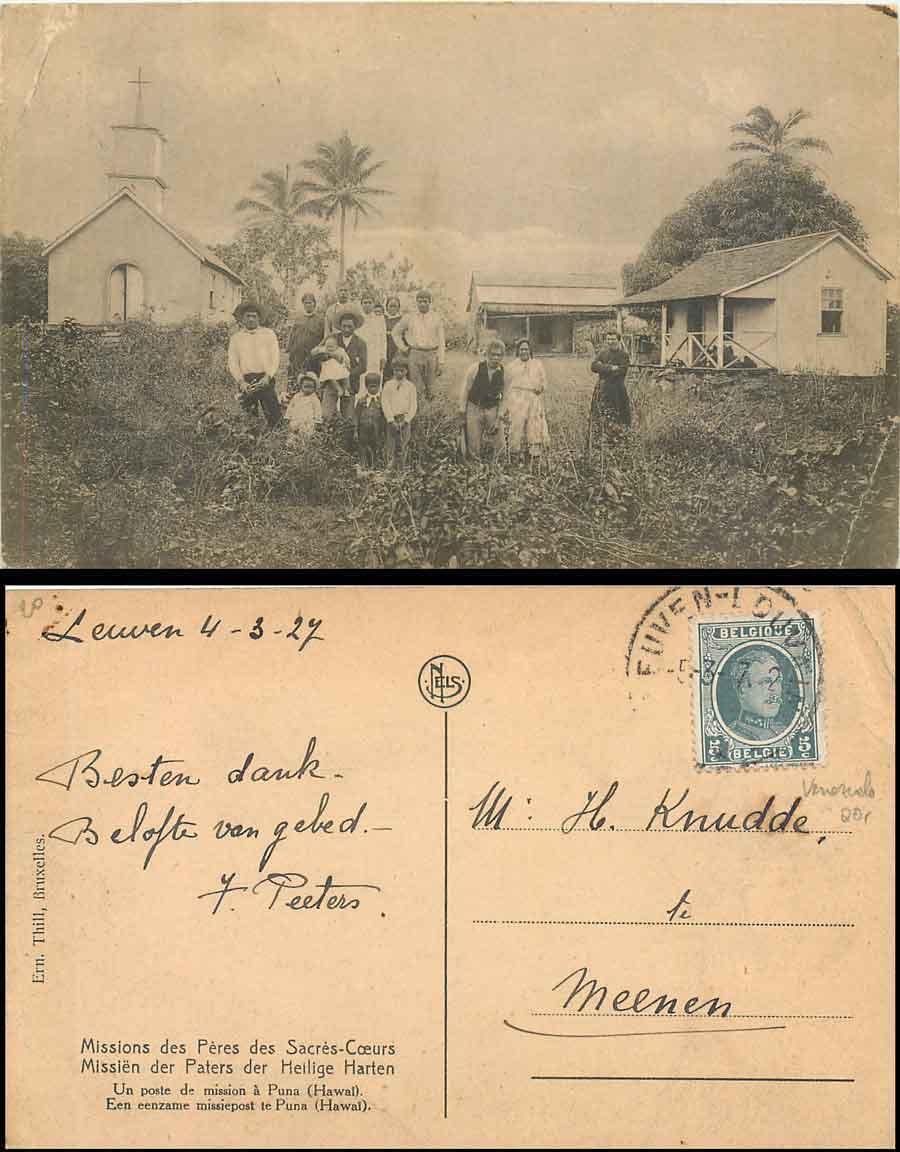 Leuven 4-3-27
NELS
LEUVEN-LOUV
BELGIQUE
5c 5c
BELGIË
Besten dank -
Belofte van gebed. -
F. Peeters.
Mr: H. Knudde,
te
Meenen
20,
Ern. Thill, Bruxelles.
Missions des Pères des Sacrés-Cœurs
Missiën der Paters der Heilige Harten
Un poste de mission à Puna (Hawaï).
Een eenzame missiepost te Puna (Hawaï).